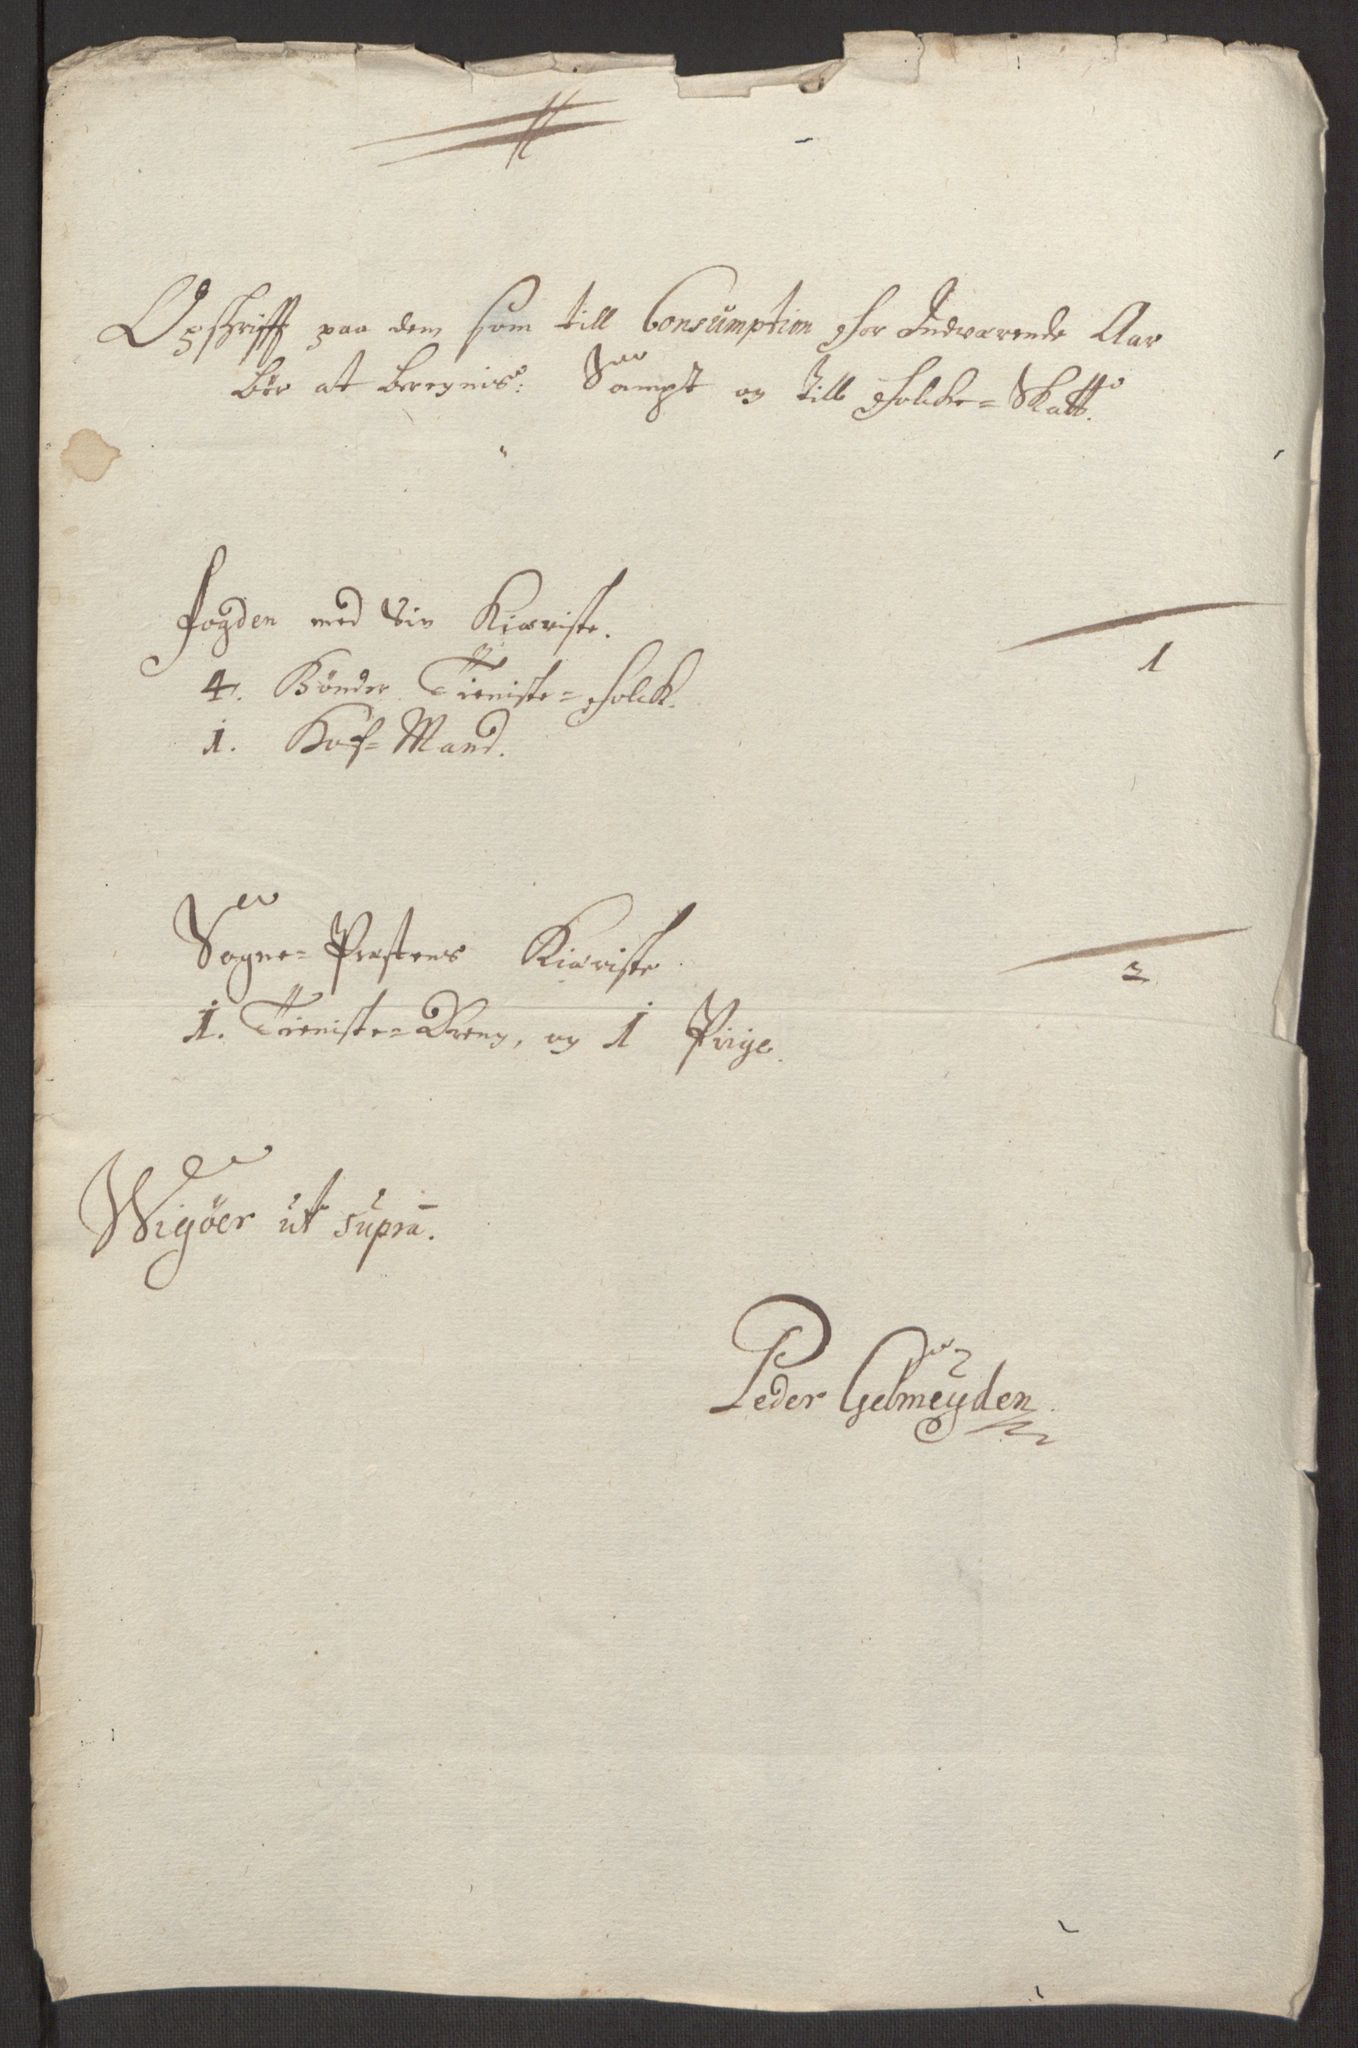 Opshrifft paa dem som till Consumption for Indværende Aar
bør at beregnis: Sampt og till folche-Skatt.
Fogden med Sin Kiæriste. 1
4. Bönder Tieniste-folck.
1. Huus-Mand.
Sogne-Præstens Kiæriste 2
1. Tieniste-Dreng, og 1 Piige.
Wigöer ut supra.
Peder Gelmeyden